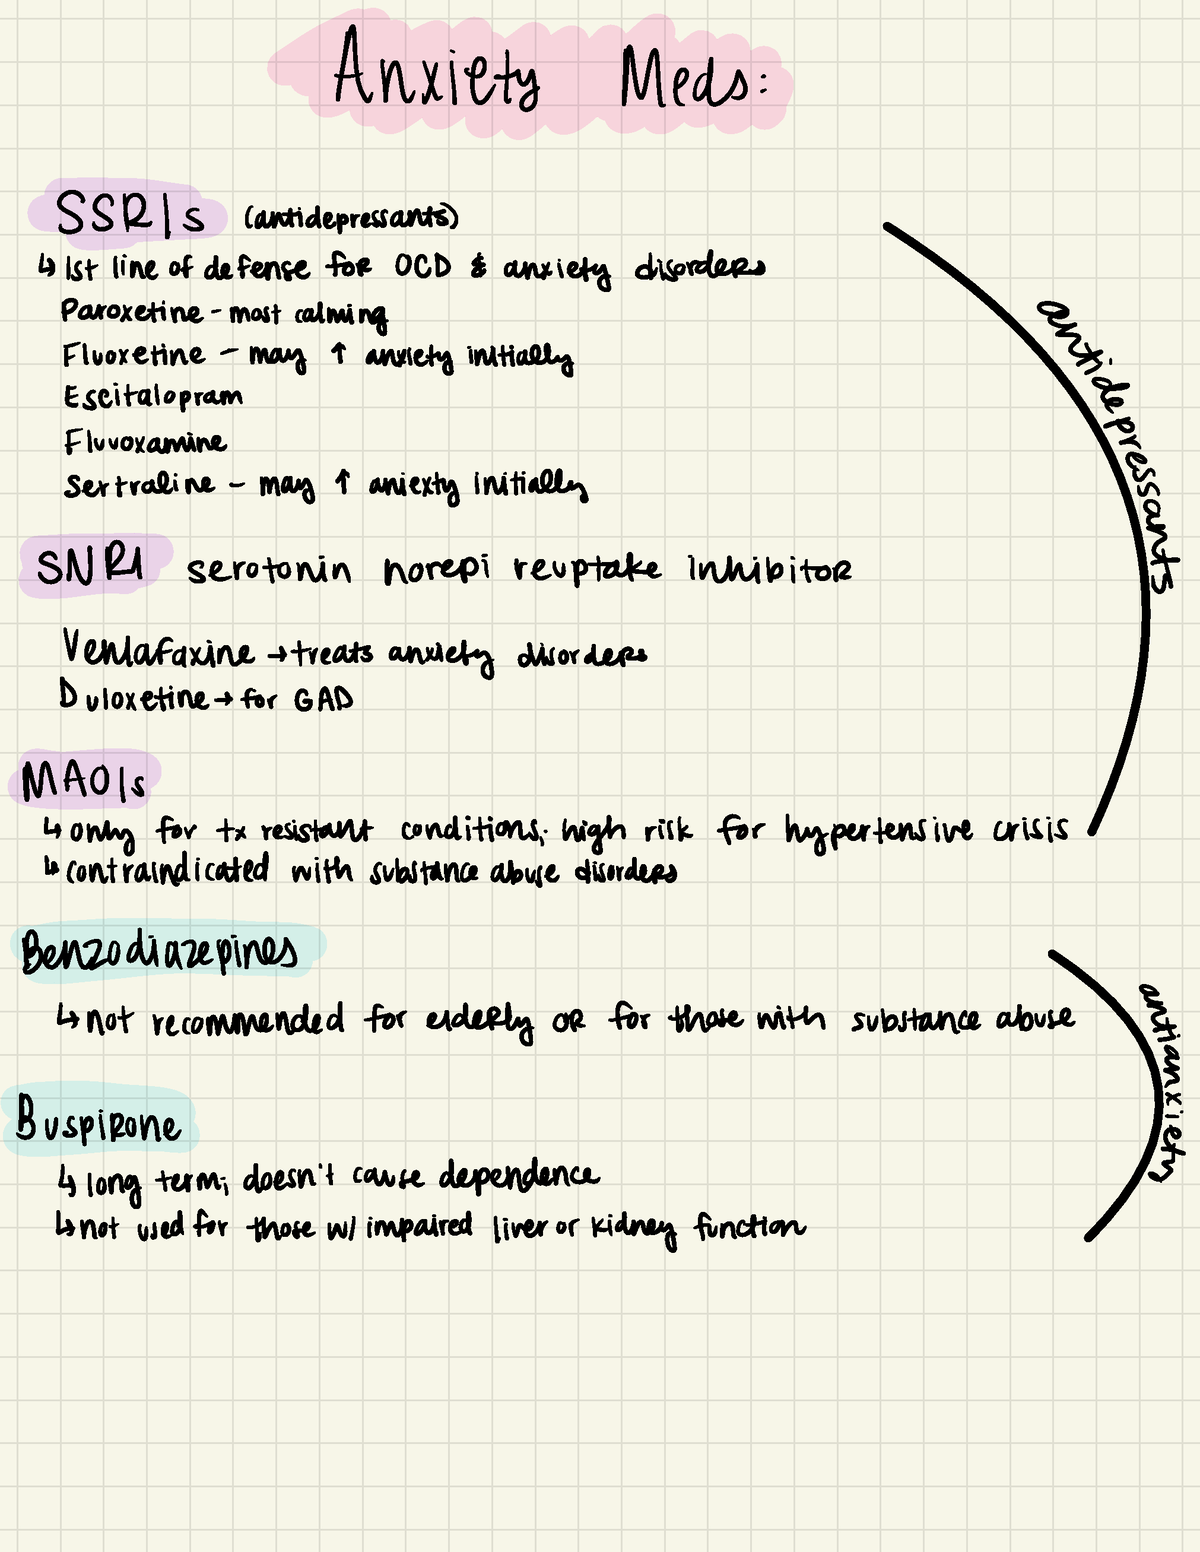 Anxiety Meds:
SSRIs (antidepressants)
↳ 1st line of defense for OCD & anxiety disorders
Paroxetine - most calming
Fluoxetine - may ↑ anxiety initially
Escitalopram
Fluvoxamine
Sertraline - may ↑ aniexty initially
SNRI serotonin norepi reuptake inhibitor
Venlafaxine → treats anxiety disorders
Duloxetine → for GAD
antidepressants
MAOIs
↳ only for tx resistant conditions; high risk for hypertensive crisis
↳ contraindicated with substance abuse disorders
Benzodiazepines
↳ not recommended for elderly OR for those with substance abuse
Buspirone
↳ long term; doesn't cause dependence
↳ not used for those w/ impaired liver or kidney function
antianxiety